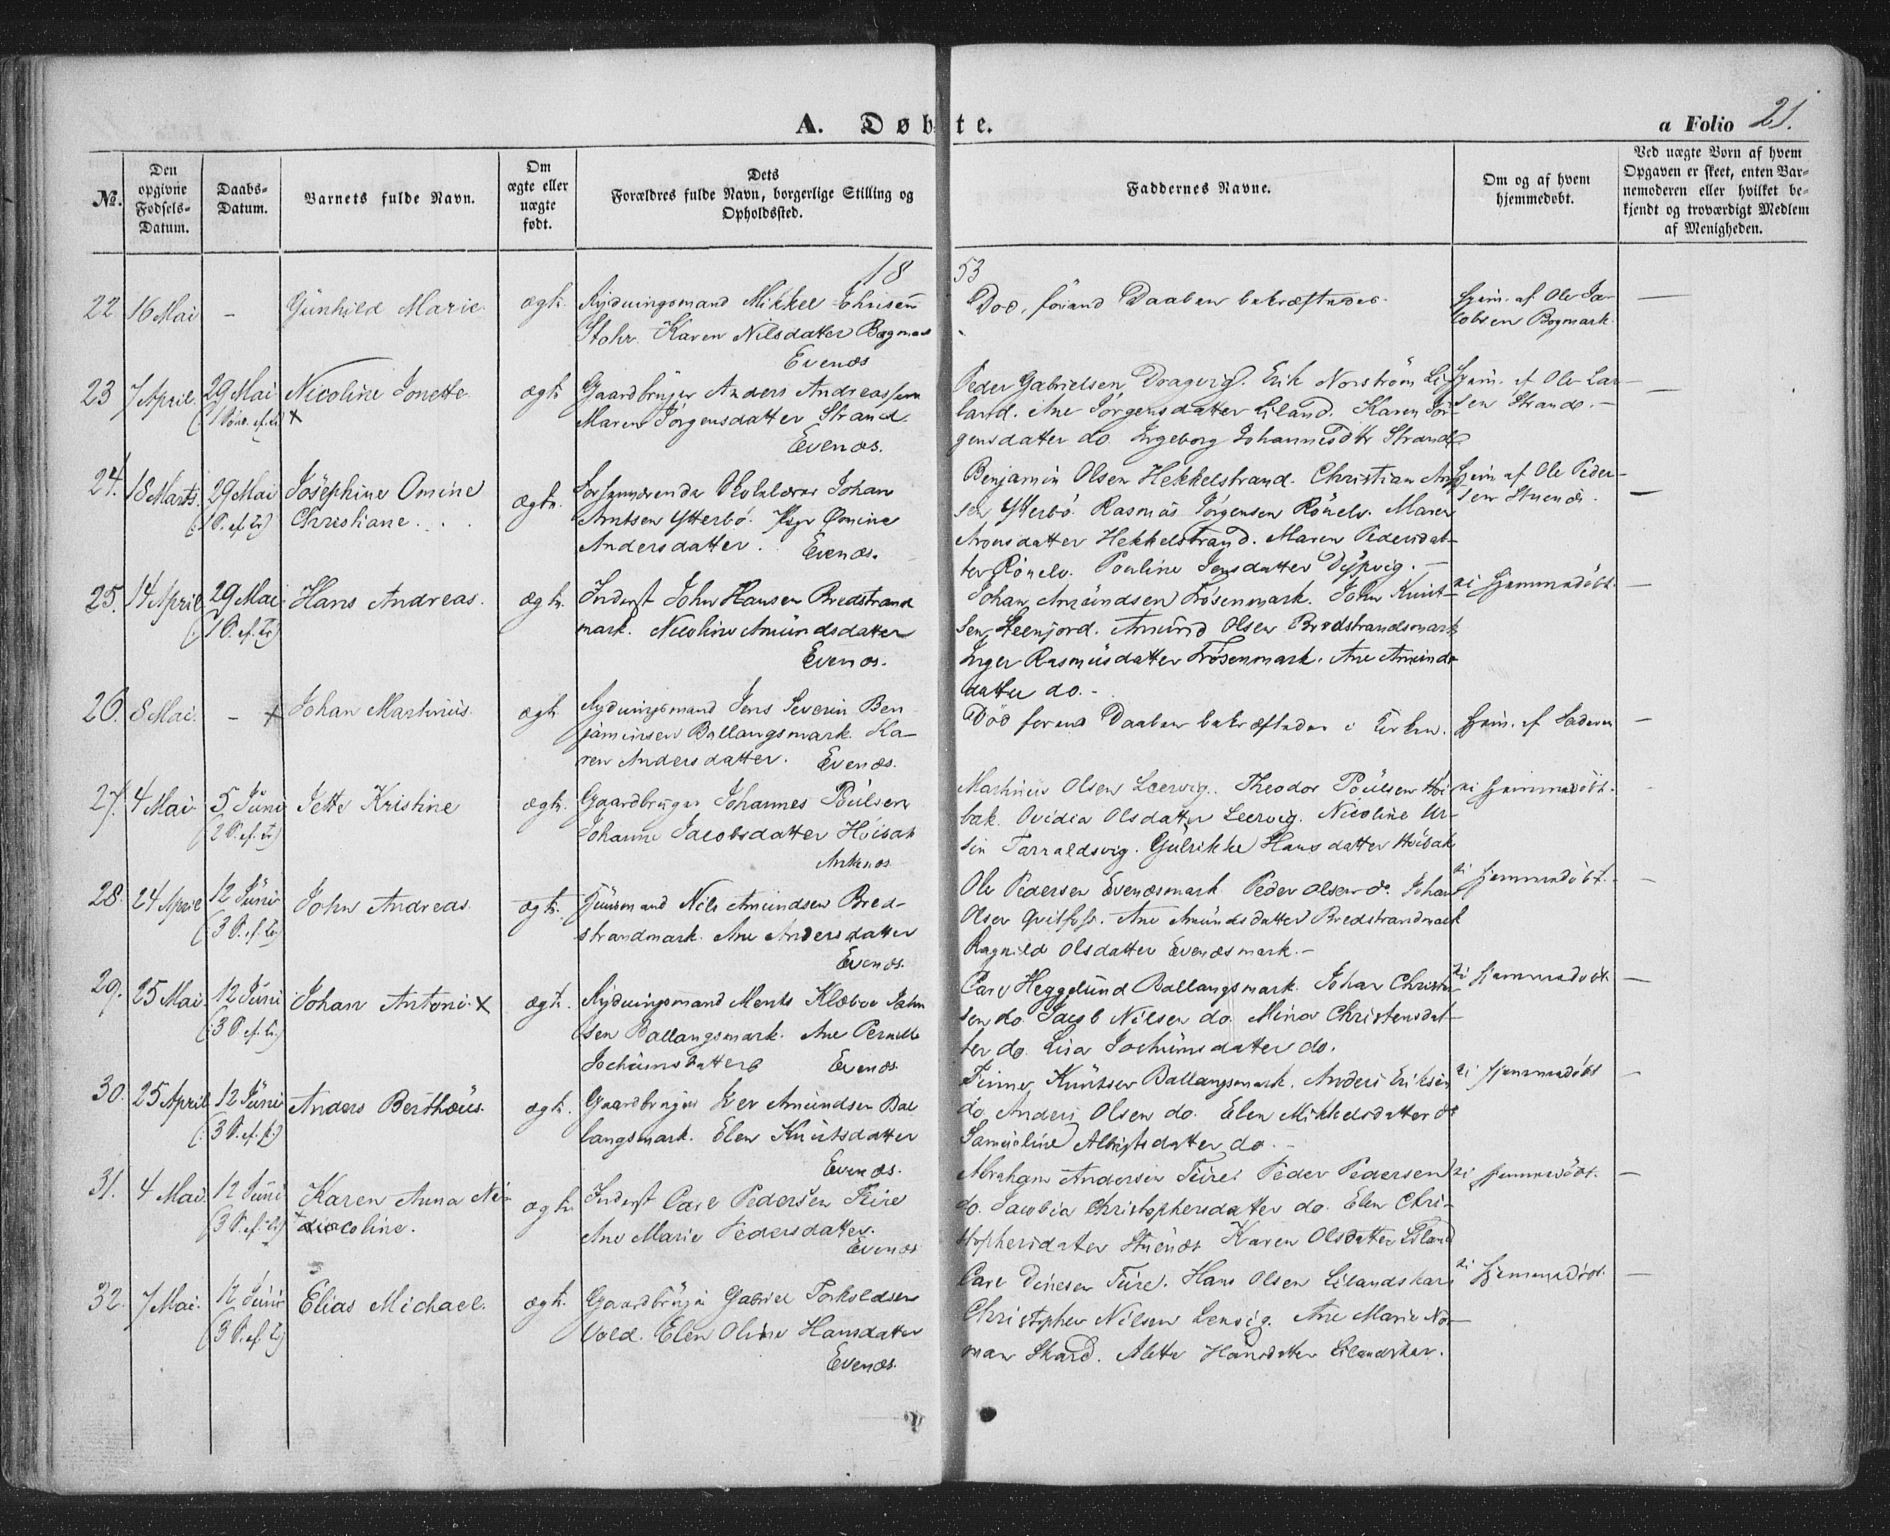 A. Døbte.
a Folio 21.
№.
Den opgivne Fødsels-Datum.
Daabs-Datum.
Barnets fulde Navn.
Om ægte eller uægte født.
Dets Forældres fulde Navn, borgerlige Stilling og Opholdssted.
Faddernes Navne.
Om og af hvem hjemmedøbt.
Ved uægte Børn af hvem Opgaven er skeet, enten Barnemoderen eller hvilket bekjendt og troværdigt Medlem af Menigheden.
18 53
22. 16 Mai – Gunhild Marie. ægte.
Rydningsmand Mikkel
Karen Nilsdatter
Evenæs
Død, førend Daaben bekræftedes.
Hjem. af Ole Jacobsen Bogmark. —
23 7 April. 29 Mai Nicoline Jonette ægte
Gaardbruger Anders Andreassen
Maren Jørgensdatter Strand.
Evenæs.
Peder Gabrielsen Dragvig. Erik Norstrøm Liland. Ane Jørgensdatter Liland. Karen Jørgensdatter do. Ingeborg Johannesdtr Strand
Hjem. af Ole Larsen Strand. —
24. 18 Marts. 29 Mai Josephine Omine
Christiane. ægte.
Skolelærer Johan
Arntsen Ytterbø. Omine
Andersdatter. Evenæs.
Benjamin Olsen Hekkelstrand. Christian
Ytterbø. Rasmus Jørgensen Rønelv. Maren
Aronsdatter Hekkelstrand. Maren Pedersdatter Rønelv. Pouline Jensdatter Dypvig. —
Hjem af Ole Pedersen Stuenæs. —
25. 14 April 29 Mai Hans Andreas. ægte.
Inderst John Hansen Bredstrand
mark. Nicoline Amundsdatter
Evenæs.
Johan Amundsen Trøsenmark. John Knutsen Steenjord. Amund Olsen Bredstrandsmark
Inger Rasmusdatter Trøsenmark. Ane Amundsdatter do. –
ei hjemmedøbt. —
26. 8 Mai. – Johan Martinus. ægte
Rydningsmand Jens Severin Ben
jaminsen Ballangsmark. Ka-
ren Andersdatter. Evenæs.
Død førend Daaben bekræftedes i Kirken.
Hjem. af Faderen —
27. 4 Mai 5 Juni Jette Kristine ægte.
Gaardbruger Johannes Poulsen
Johanne Jacobsdatter Høibak
Ankenæs
Martinus Olsen Leervig. Theodor Poulsen Høibak. Ovidia Olsdatter Leervig. Nicoline
Tarraldsvig. Gulrikke Hansdatter Høibak
ei hjemmedøbt.
28. 24 April 12 Juni John Andreas. ægte.
Huusmand Nils Amundsen Bred-
strandmark. Ane Andersdatter
Evenæs.
Ole Pedersen Evenæsmark. Peder Olsen do. Johan
Olsen Ane Amundsdatter Bredstrandmark
Ragnild Olsdatter Evenæsmark. –
ei hjemmedøbt. —
29. 25 Mai 12 Juni Johan Antoni. ægte.
Rydningsmand Ments Klæboe John
sen Ballangsmark. Ane Pernille
Jochumsdatter Evenæs
Carl Hegglund Ballangsmark. Johan Christensen do Jacob Nilsen do. Mina Christensdatter do. Lisa Jochumsdatter do.
ei hjemmedøbt —
30. 25 April 12 Juni Anders Berthæus. ægte.
Gaardbruger Iver Amundsen Bal
langsmark. Elen Knutsdatter
Evenæs.
Finner Knutsen Ballangsmark. Anders Eriksen
do. Anders Olsen do. Elen Mikkelsdatter do
Samueline Albrigtsdatter do. –
ei hjemmedøbt —
31. 4 Mai 12 Juni Karen Anna Ni-
coline. ægte.
Inderst Carl Pedersen
Ane Marie Pedersdatter.
Evenæs
Abraham Andersen Peder Pedersen
do. Jacobia Christophersdatter do. Elen Christophersdatter Stuenæs Karen Olsdatter Liland
ei hjemmedøbt. —
32. 7 Mai. 12 Juni Elias Michael. ægte.
Gaardbruger Gabriel Torkildsen
Vold. Elen Oline Hansdatter
Evenæs.
Carl Dinesen Hans Olsen Lilandskar
Christopher Nilsen Lenvig. Ane Marie Norman Skard. Alette Hansdatter Lilandskar.
ei hjemmedøbt. —